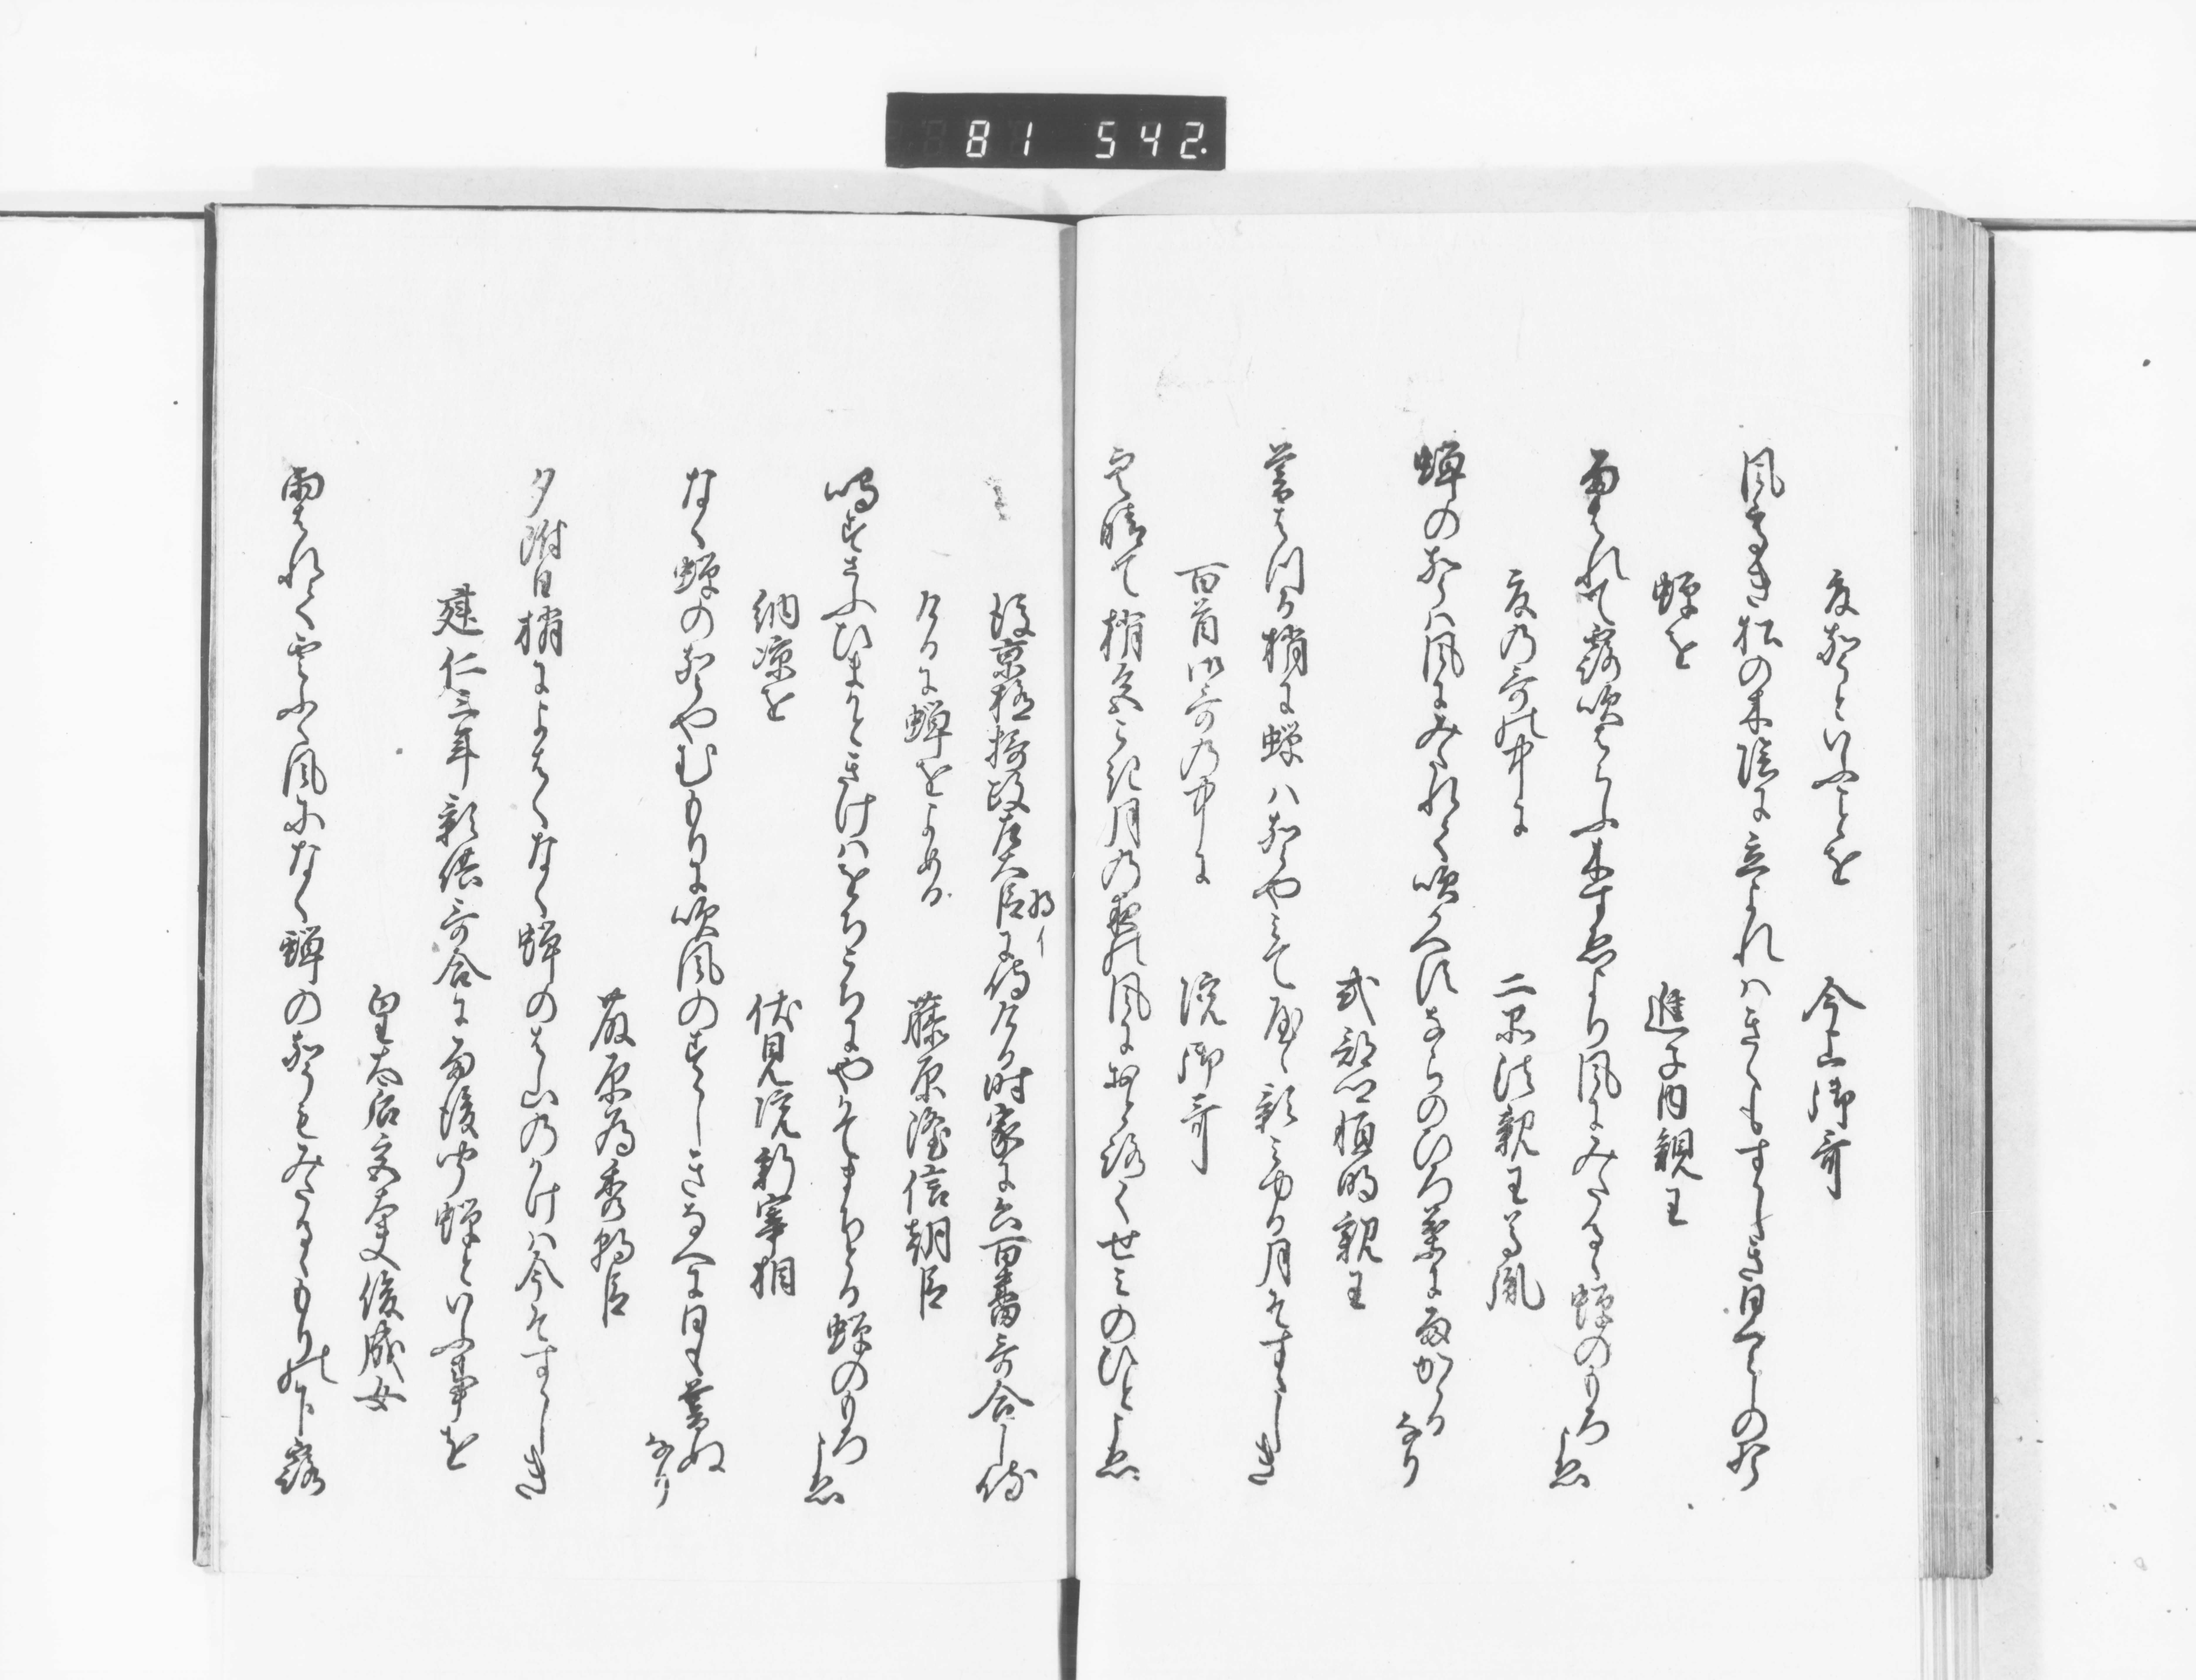 81 542.
夏歌といふことを 今上御哥
風たかき松の木陰に立よれはきくもすゝしき日くらしの声
蝉を 進子内親王
雨はれて露吹はらふ木すゑより風にみたるゝ蝉のもろこゑ
夏の哥の中に 二品法親王尊胤
蝉のこゑは風にみたれて吹かへすならのひろ葉に雨かゝるなり
式部卿恒明親王
暮はつる梢に蝉は声やみてやゝ影みゆる月そすゝしき
百首御哥の中に 院御哥
空晴て梢色こき月の夜の風におとろく世みのひとこゑ
後京極摂政左大臣に侍ける時家に六百番哥合し侍
将イ
けるに蝉をよめる 藤原隆信朝臣
鳴すさふひまかときけはをちこちにやかてまちとる蝉のもろこゑ
納涼を 伏見院新宰相
なく蝉のこゑやむもりに吹風のすゝしきなへに日も暮ぬなり
藤原為秀朝臣
夕附日梢によはくなく蝉のは山のかけは今そすゝしき
建仁三年影供哥合に雨後聞蝉といふ事を
皇太后宮大夫俊成女
雨はれて雲ふく風になく蝉の声もみたるゝもりの下露